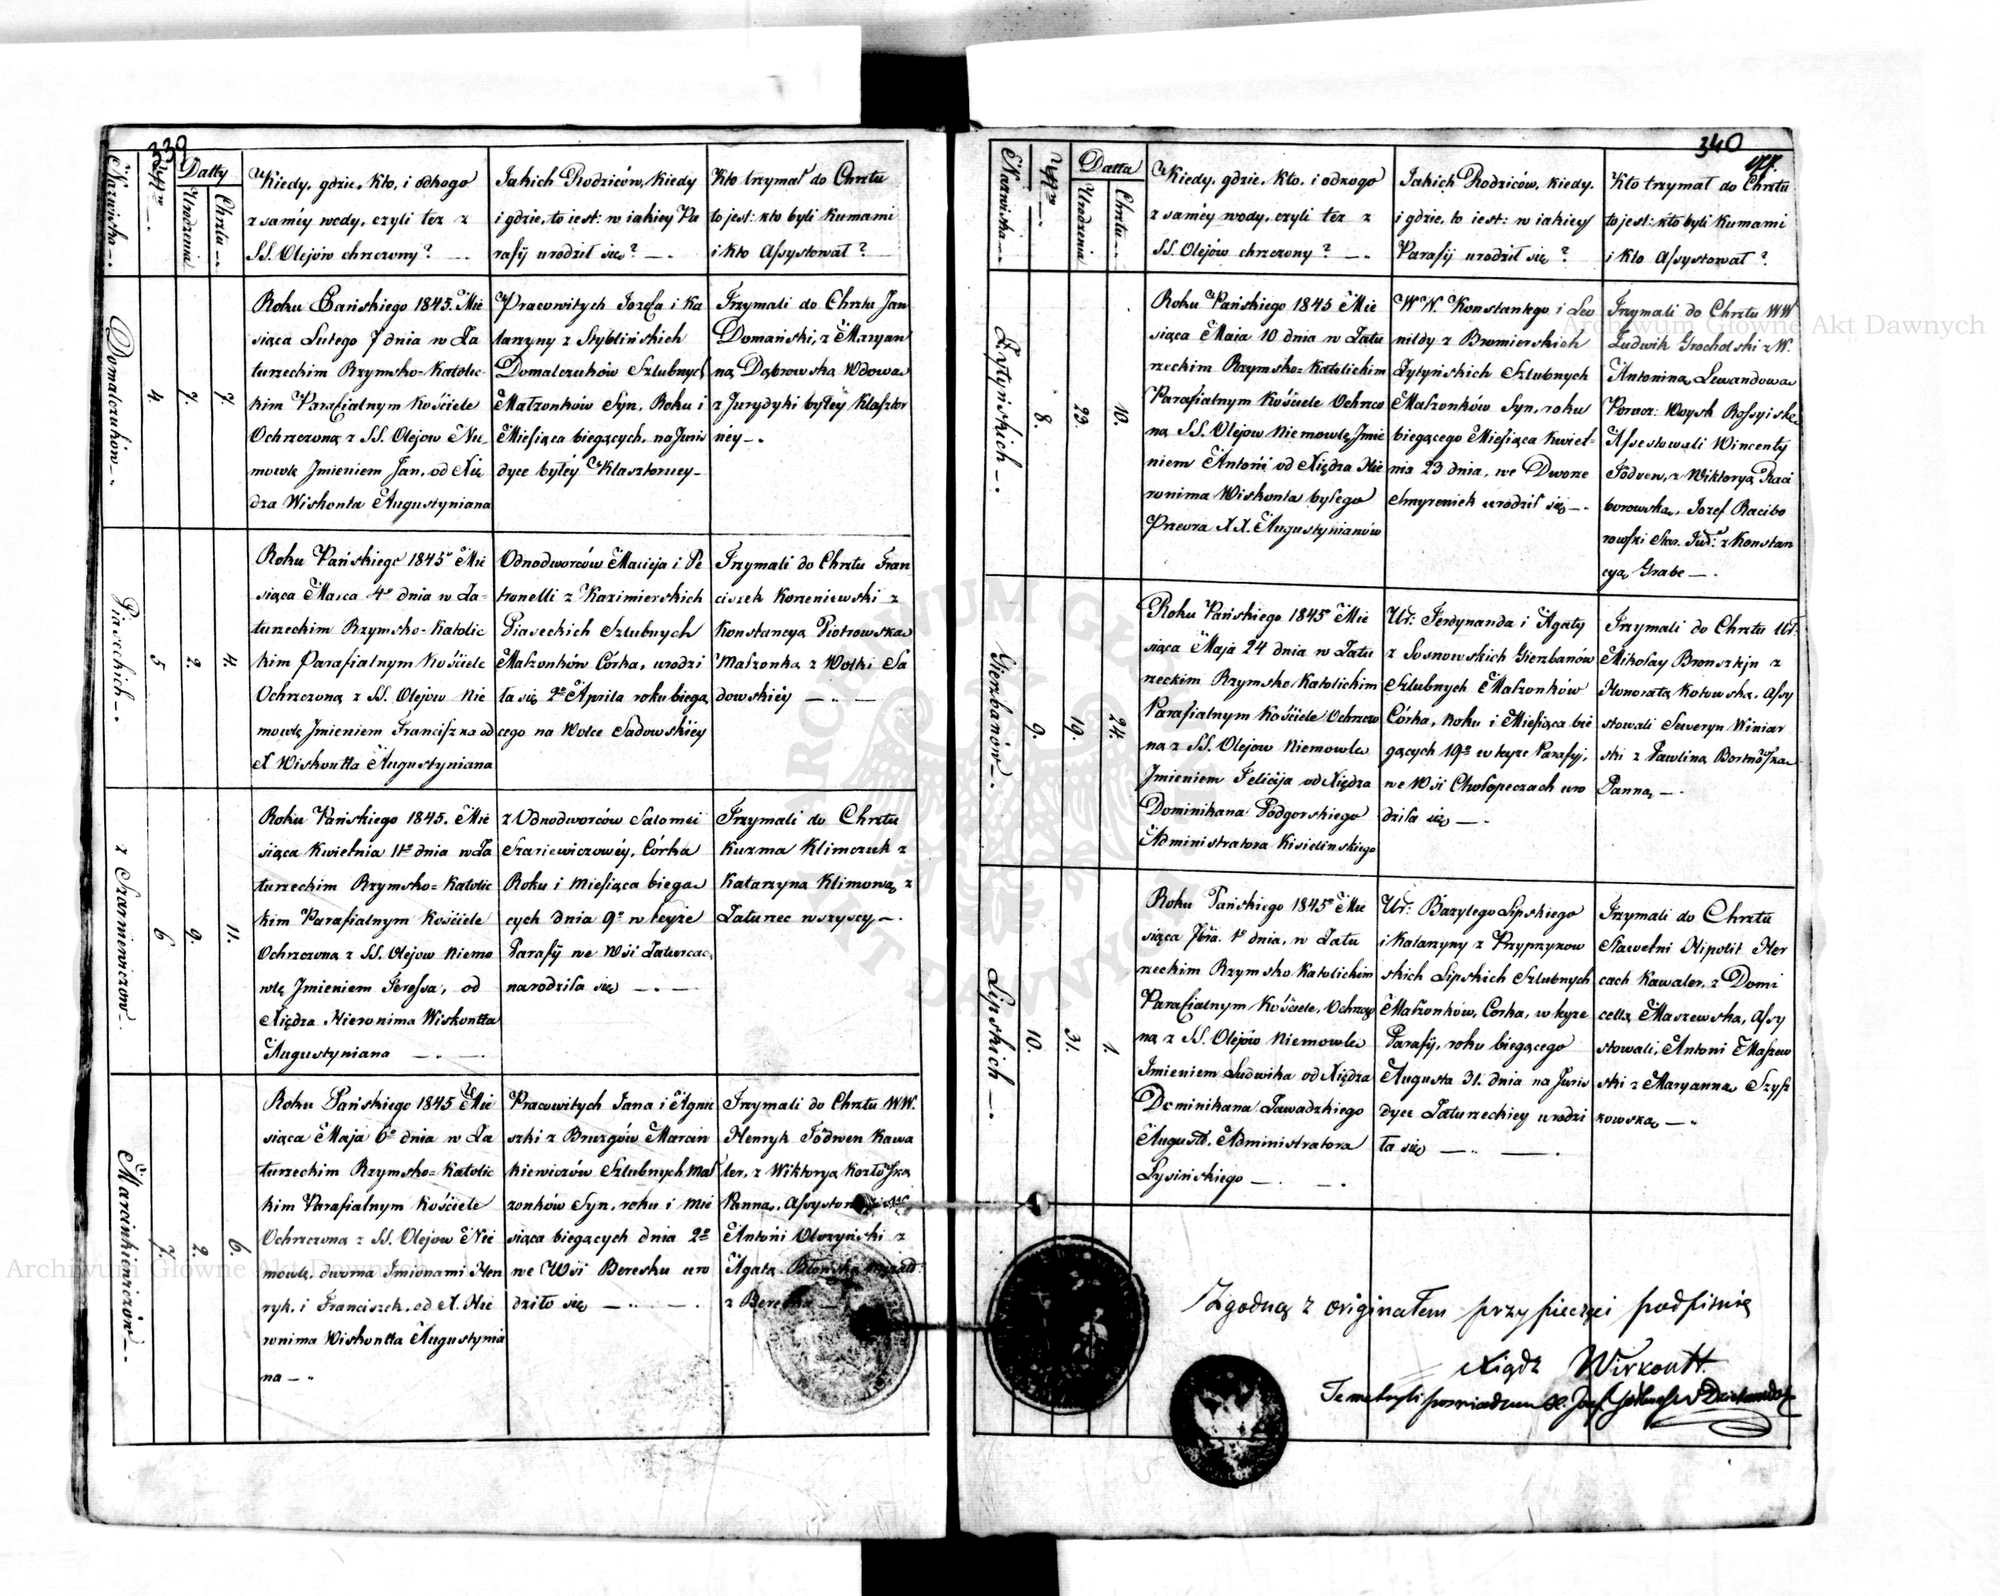 339
Nazwiska
Datty
Urodzenia
Chrztu
Kiedy, gdzie, kto, i od kogo
z samey wody, czyli też z
SS. Olejów chrzczony?
Jakich Rodziców, kiedy
i gdzie, to iest: w iakiey Pa
rafij urodził się?
Kto trzymał do Chrztu
to jest: kto byli Kumami
i kto Assystował?
Domalczuków
4
7.
7.
Roku Pańskiego 1845. Mie
siąca Lutego 7 dnia w Za
turzeckim Rzymsko-Katolic
kim Parafialnym Kościele
Ochrzczona z SS. Olejow Nie
mowle Jmieniem Jan, od Xię
dza Wiskonta Augustyniana
Pracowitych Jozefa i Ka
tarzyny z Stiblińskich
Domalczuków Szlubnych
Małzonków Syn, Roku i
Miesiąca biegących, na Juris
dyce byłey Klasztorney
Trzymali do Chrztu Jan
Domański, z Maryan
ną Dąbrowską Wdową
z Jurydyki byłey Klasztor
ney
Piaseckich
5
2.
4.
Roku Pańskiego 1845º Mie
siąca Marca 4º dnia w Za-
turzeckim Rzymsko-Katolic
kim Parafialnym Kościele
Ochrzczona z SS. Olejow Nie
mowle Jmieniem Franciszka od
X Wiskontta Augustyniana
Odnodworców Macieja i Pe
tronelli z Kazimierskich
Piaseckich Szlubnych
Małzonków Córka, urodzi
ła się 2º Aprila roku biegą
cego na Wolce Sadowskiey
Trzymali do Chrztu Fran
ciszek Korzeniewski z
Konstancyą Piotrowską
Małzonką z Wolki Sa
dowskiey
z Szaniewiczow
6
9.
11.
Roku Pańskiego 1845. Mie
siąca Kwietnia 11º dnia w Za
turzeckim Rzymsko=Katolic
kim Parafialnym Kościele
Ochrzczona z SS. Olejow Niemo
wle Jmieniem Teressa, od
Xiędza Hieronima Wiskontta
Augustyniana
z Odnodworców Salomei
Córka
Roku i Miesiąca biegą
cych dnia 9º w teyże
Parafij we Wsi Zaturcac
narodziła się
Trzymali do Chrztu
Kuzma Klimczuk z
Katarzyną Klimową z
Zaturzec wszyscy
Marcinkiewiczów
7.
2.
6.
Roku Pańskiego 1845 Mie
siąca Maja 6º dnia w Za
turzeckim Rzymsko=Katolic
kim Parafialnym Kościele
Ochrzczona z SS. Olejow Nie
mowle, dwoma Jmionami Hen
ryk, i Franciszek, od X. Hie
ronima Wiskontta Augustynia
na
Pracowitych Jana i Agnie
szki z Bruzgów Marcin
kiewiczów Szlubnych Mał
zonków Syn, roku i Mie
siąca biegących dnia 2º
we Wsi Beresku uro
dziło się
Trzymali do Chrztu WW.
Henryk Jodwen Kawa
ler, z Wiktoryą Kozłoską
Panną,
Antoni Olszyński z
Agatą
340
Nazwiska
Datta
Urodzenia
Chrztu
Kiedy, gdzie, kto, i od kogo
z samey wody, czyli też z
SS. Olejów chrzczony?
Jakich Rodziców, kiedy,
i gdzie, to iest: w iakiey
Parafij urodził się?
Kto trzymał do Chrztu
to jest: kto byli Kumami
i kto Assystował?
Żytyńskich
8.
23.
10.
Roku Pańskiego 1845 Mie
siąca Maia 10 dnia w Zatu
rzeckim Rzymsko=Katolickim
Parafialnym Kościele Ochrzco
na SS. Olejow Niemowle Jmie
niem Antoni od Xiędza Hie
ronima Wiskonta byłego
Przeora XX. Augustynianów
WW. Konstantego i Leo
nildy z Bromierskich
Żytyńskich Szlubnych
Małzonków Syn, roku
biegącego Miesiąca Kwiet-
nia 23 dnia, we Dworze
urodził się
Trzymali do Chrztu WW
Ludwik Grocholski z W.
Antoniną Lewandową
Porucz: Woysk Rossyiskc
Assestowali Wincenty
Jodwen, z Wiktoryą Raci
borowską, Jozef Racibo
rowski z Konstan
cyą Grabe
Gierzbanów
9.
19.
24.
Roku Pańskiego 1845º Mie
siąca Maja 24 dnia w Zatu
rzeckim Rzymsko Katolickim
Parafialnym Kościele Ochrzco
na z SS. Olejow Niemowle
Jmieniem Felicija od Xiędza
Dominikana Podgorskiego
Administratora Kisielinskiego
Ur: Ferdynanda i Agaty
z Sosnowskich Gierzbanów
Szlubnych Małzonków
Córka, Roku i Miesiąca bie
gących 19º w tyże Parafij,
we Wsi Chołopeczach uro
dziła się
Trzymali do Chrztu Ur:
Mikołay z
Honoratą Kotowską, Assy
stowali Seweryn Winiar
ski z Pawliną
Panną
Lipskich
10.
31.
1.
Roku Pańskiego 1845º Mie
siąca 7bra. 1º dnia, w Zatu
rzeckim Rzymsko Katolickim
Parafialnym Kościele, Ochrzco
na z SS. Olejów Niemowle
Jmieniem Ludwika od Xiędza
Dominikana Zawadzkiego
August. Administratora
Łysińskiego
Ur: Bazylego Lipskiego
i Katarzyny z Przyprzykow
skich Lipskich Szlubnych
Małzonków, Corka, w tyze
Parafij, roku biegącego
Augusta 31. dnia na Juris
dyce Zaturzeckiey urodzi
ła się
Trzymali do Chrztu
Sławetni Hipolit Her
cach Kawaler, z Domi
cellą Maszewską, Assy
stowali, Antoni Maszew
ski z Maryanną Szysz
kowską
Zgodną z originałem przy pieczęci podpisuię
Xiądz Wiskontt
Archiwum Główne Akt Dawnych
Archiwum Główne Akt Dawnych
ARCHIWUM GŁÓWNE AKT DAWNYCH